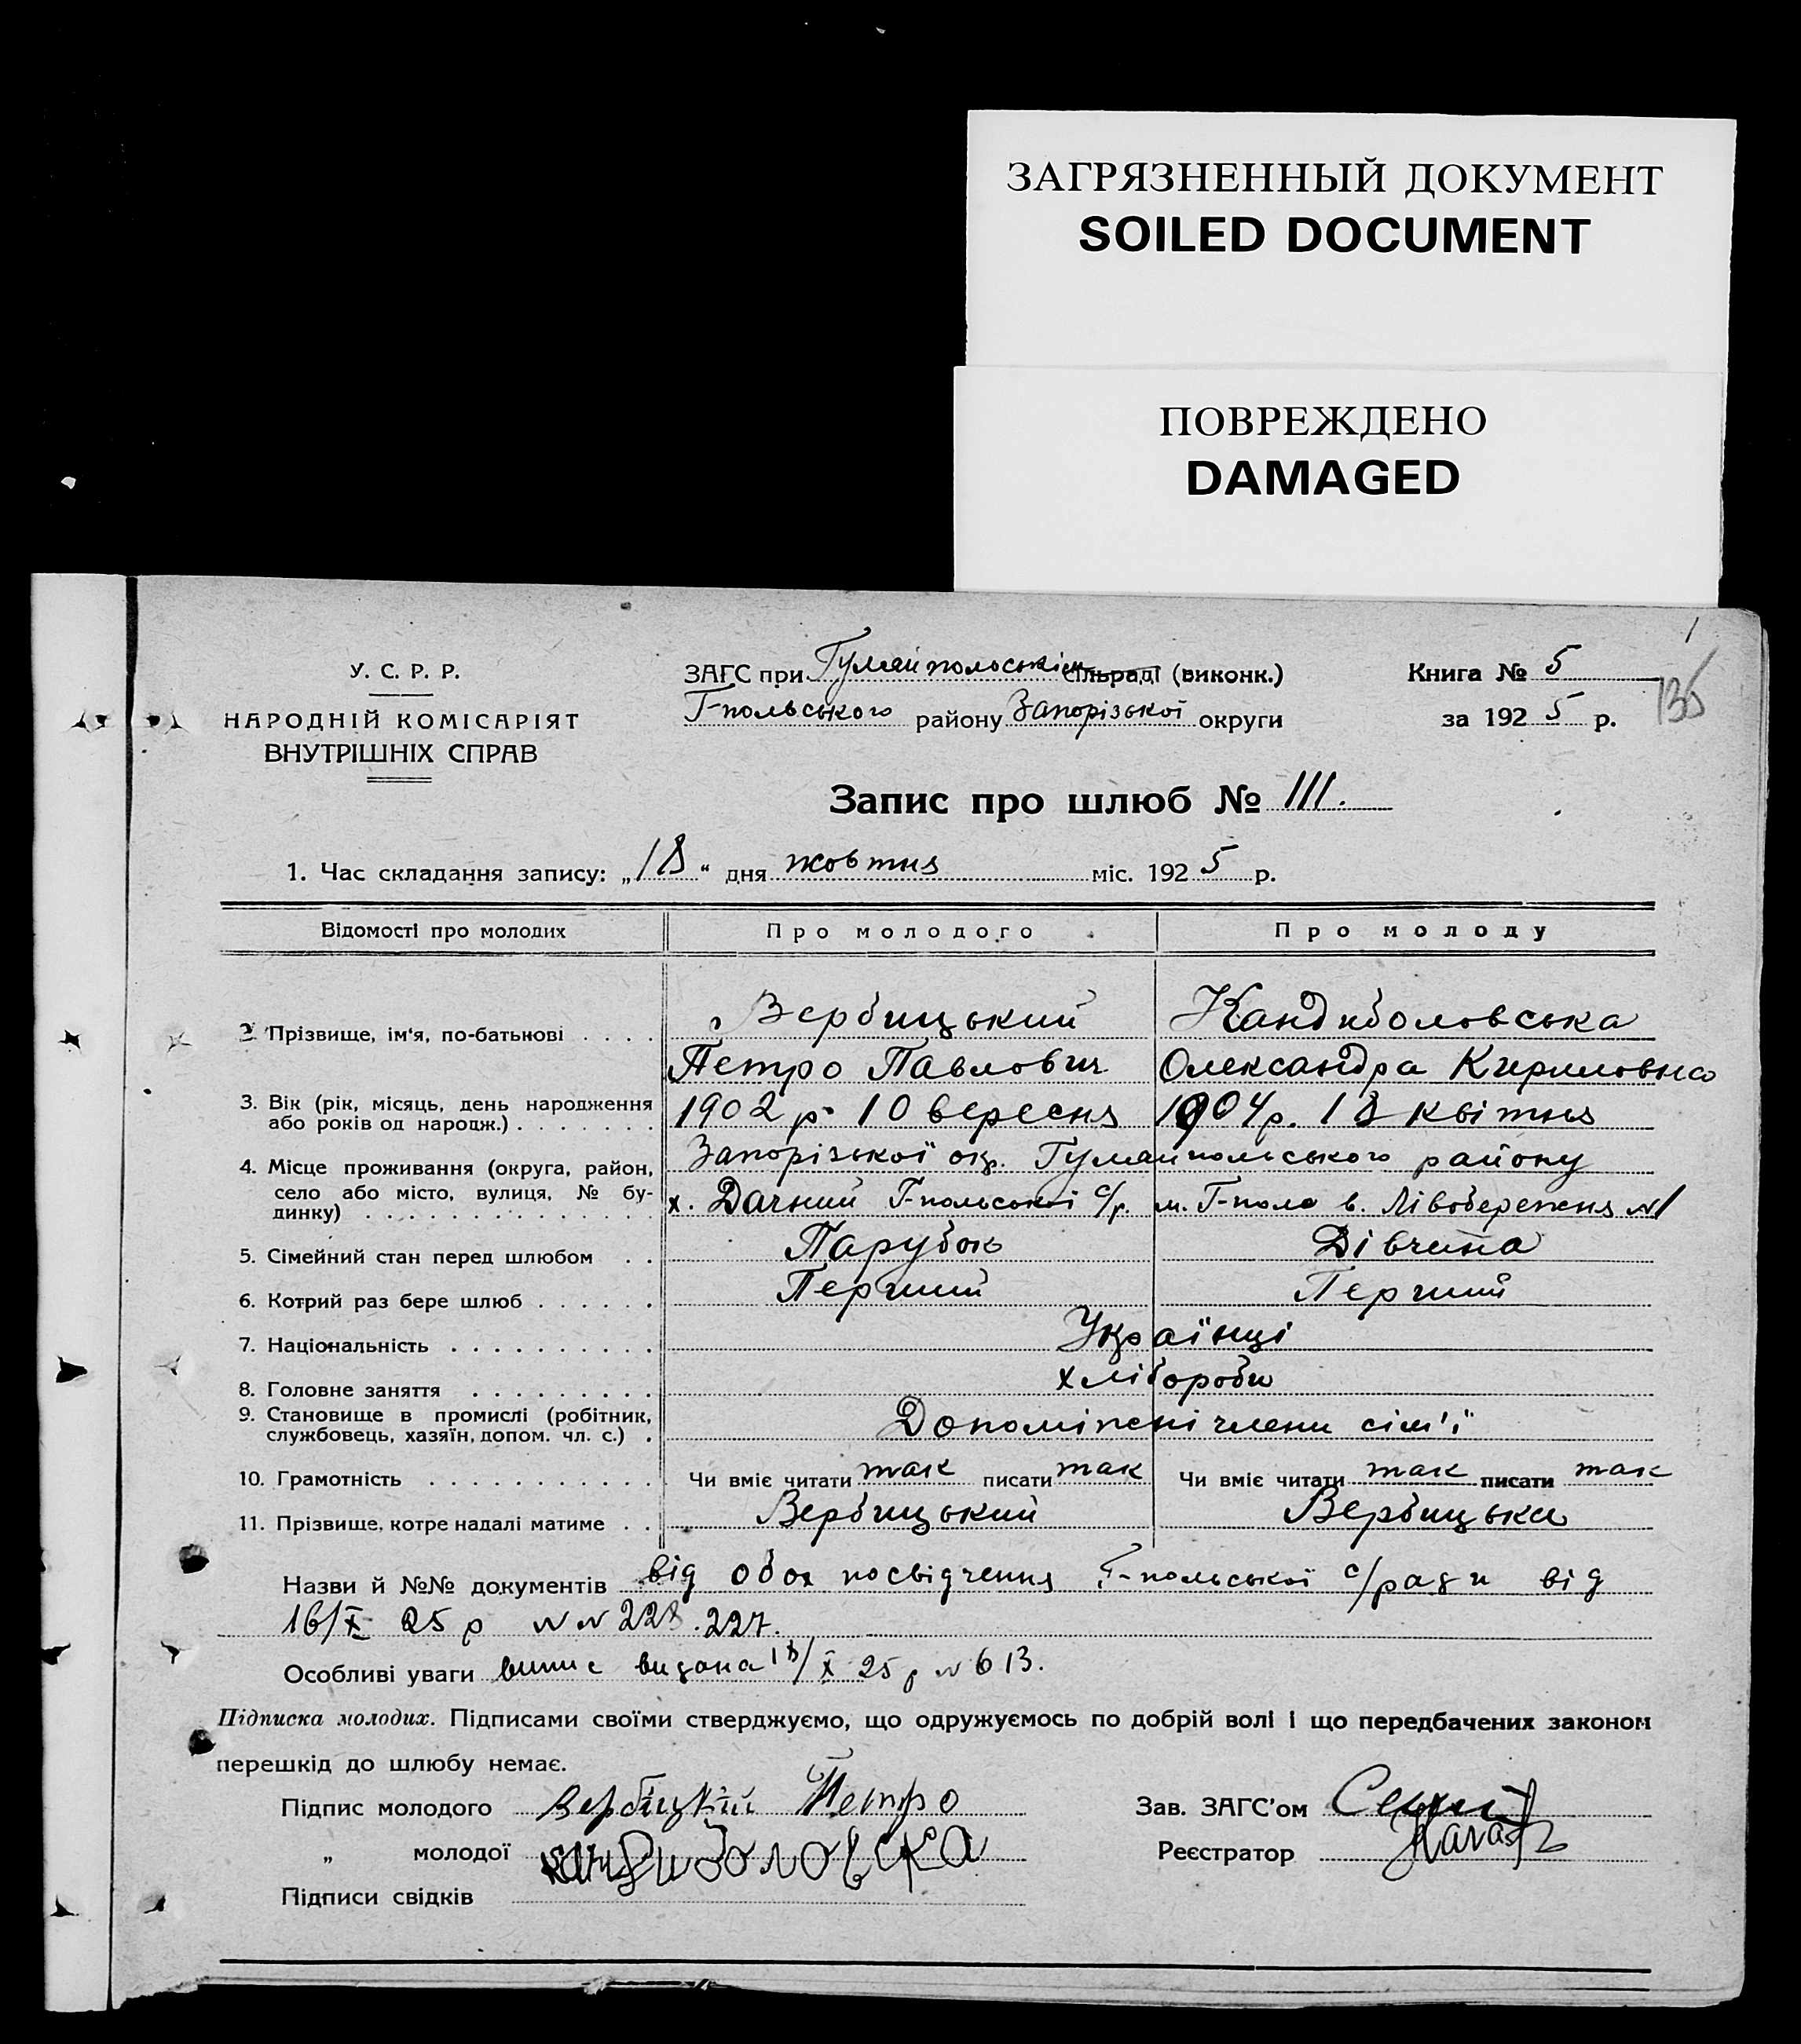 ЗАГРЯЗНЕННЫЙ ДОКУМЕНТ
SOILED DOCUMENT
ПОВРЕЖДЕНО
DAMAGED
У. С. Р. Р.
НАРОДНІЙ КОМІСАРІЯТ
ВНУТРІШНІХ СПРАВ
ЗАГС при Гуляйпольським сільраді (виконк.)
Г-польського району Запорізької округи
Книга № 5
за 1925 р.
135
Запис про шлюб № 111.
1. Час складання запису: „18“ дня жовтня міс. 1925 р.
Відомості про молодих Про молодого Про молоду
2. Прізвище, ім'я, по-батькові . . . . Вербицький Кандиболовська
Петро Павлович Олександра Кириловна
3. Вік (рік, місяць, день народження або років од народж.) . . . . . . . 1902 р. 10 вересня 1904 р. 18 квітня
4. Місце проживання (округа, район, село або місто, вулиця, № будинку) . . . . . . . . . . . . . . . Запорізької окр. Гуляйпольського району
х. Дачний Г-польської с/р. м. Г-поле в. Лівобережня №1
5. Сімейний стан перед шлюбом . . Парубок Дівчина
6. Котрий раз бере шлюб . . . . . . Перший Перший
7. Національність . . . . . . . . . . Українці
8. Головне заняття . . . . . . . . . хлібороби
9. Становище в промислі (робітник, службовець, хазяїн, допом. чл. с.) . Допоміжні члени сім'ї
10. Грамотність . . . . . . . . . . . Чи вміє читати так писати так Чи вміє читати так писати так
11. Прізвище, котре надалі матиме . . Вербицький Вербицька
Назви й №№ документів від обох посвідчення Г-польської с/ради від
16/X 25 р №№ 228.227.
Особливі уваги випис видана 18/X 25 р № 613.
Підписка молодих. Підписами своїми стверджуємо, що одружуємось по добрій волі і що передбачених законом
перешкід до шлюбу немає.
Підпис молодого Вербіцкій Петро
Зав. ЗАГС'ом
„ молодої Кандиболовска
Реєстратор
Підписи свідків